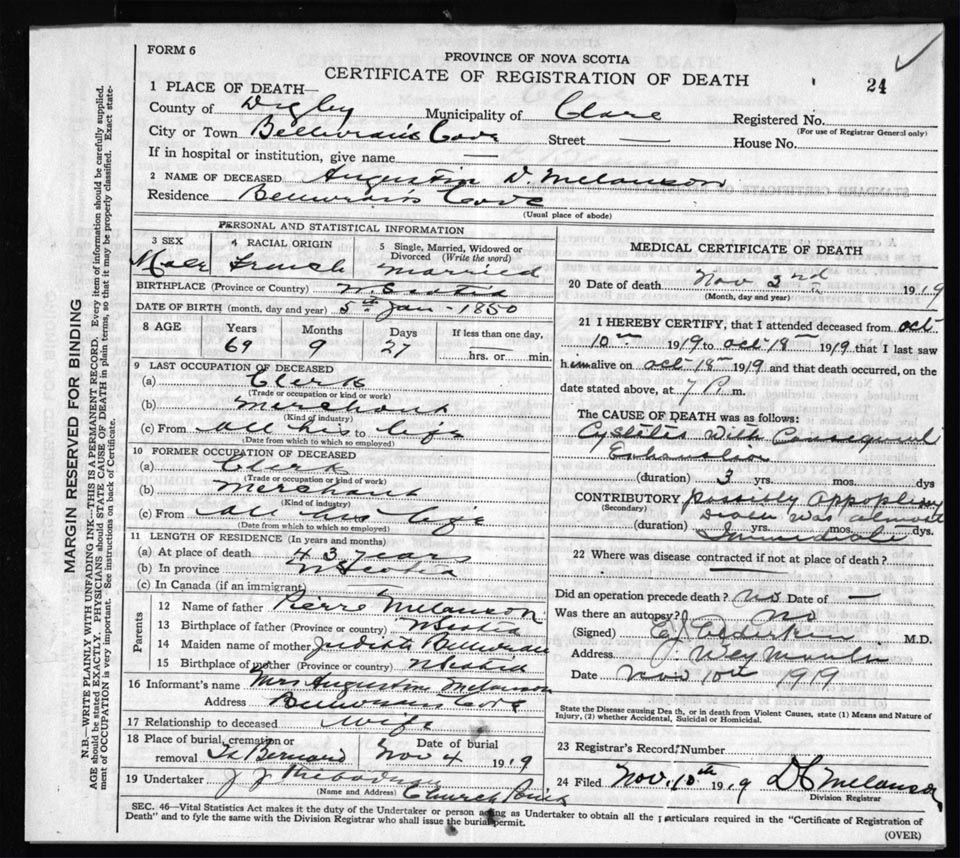 FORM 6
PROVINCE OF NOVA SCOTIA
CERTIFICATE OF REGISTRATION OF DEATH
24
1 PLACE OF DEATH—
County of Digby Municipality of Clare Registered No.
(For use of Registrar General only)
City or Town Belliveau's Cove Street — House No.
If in hospital or institution, give name —
2 NAME OF DECEASED Augustin D. Melanson
Residence Belliveau's Cove
(Usual place of abode)
PERSONAL AND STATISTICAL INFORMATION
3 SEX 4 RACIAL ORIGIN 5 Single, Married, Widowed or Divorced (Write the word)
Male French married
BIRTHPLACE (Province or Country) N. Scotia
DATE OF BIRTH (month, day and year) 5th Jan - 1850
8 AGE Years Months Days If less than one day,
69 9 27 hrs. or min.
9 LAST OCCUPATION OF DECEASED
(a) Clerk
(Trade or occupation or kind or work)
(b) Merchant
(Kind of industry)
(c) From all his to life
(Date from which to which so employed)
10 FORMER OCCUPATION OF DECEASED
(a) Clerk
(Trade or occupation or kind of work)
(b) Merchant
(Kind of industry)
(c) From all his life
(Date from which to which so employed)
11 LENGTH OF RESIDENCE (In years and months)
(a) At place of death 43 years
(b) In province N Scotia
(c) In Canada (if an immigrant)
Parents
12 Name of father Pierre Melanson
13 Birthplace of father (Province or country) N Scotia
14 Maiden name of mother Judith Belliveau
15 Birthplace of mother (Province or country) N Scotia
16 Informant's name Mrs Augustin Melanson
Address Belliveau's Cove
17 Relationship to deceased wife
18 Place of burial, cremation or removal St Bernard Date of burial Nov 4 1919
19 Undertaker J J Thibodeau
(Name and Address) Church Point
MEDICAL CERTIFICATE OF DEATH
20 Date of death Nov 3rd 1919
(Month, day and year)
21 I HEREBY CERTIFY, that I attended deceased from Oct
10th 1919 to Oct 18 1919 that I last saw
him alive on Oct 18th 1919 and that death occurred, on the
date stated above, at 7 P. m.
The CAUSE OF DEATH was as follows:
Cystites with Consequent
Exhaustion
(duration) 3 yrs. mos. dys
CONTRIBUTORY possibly Appoplexy
(Secondary) Death was almost
(duration) yrs. mos. dys.
Immediate
22 Where was disease contracted if not at place of death?
Did an operation precede death? no Date of —
Was there an autopsy? no
(Signed) M.D.
Address Weymouth
Date Nov 10th 1919
State the Disease causing Death, or in death from Violent Causes, state (1) Means and Nature of
Injury, (2) whether Accidental, Suicidal or Homicidal.
23 Registrar's Record Number
24 Filed Nov. 10th 1919 Melanson
Division Registrar
SEC. 46—Vital Statistics Act makes it the duty of the Undertaker or person acting as Undertaker to obtain all the particulars required in the "Certificate of Registration of
Death" and to fyle the same with the Division Registrar who shall issue the burial permit.
(OVER)
MARGIN RESERVED FOR BINDING
N.B.—WRITE PLAINLY WITH UNFADING INK—THIS IS A PERMANENT RECORD. Every item of information should be carefully supplied.
AGE should be stated EXACTLY. PHYSICIANS should STATE CAUSE OF DEATH in plain terms, so that it may be properly classified. Exact state-
ment of OCCUPATION is very important. See instructions on back of Certificate.